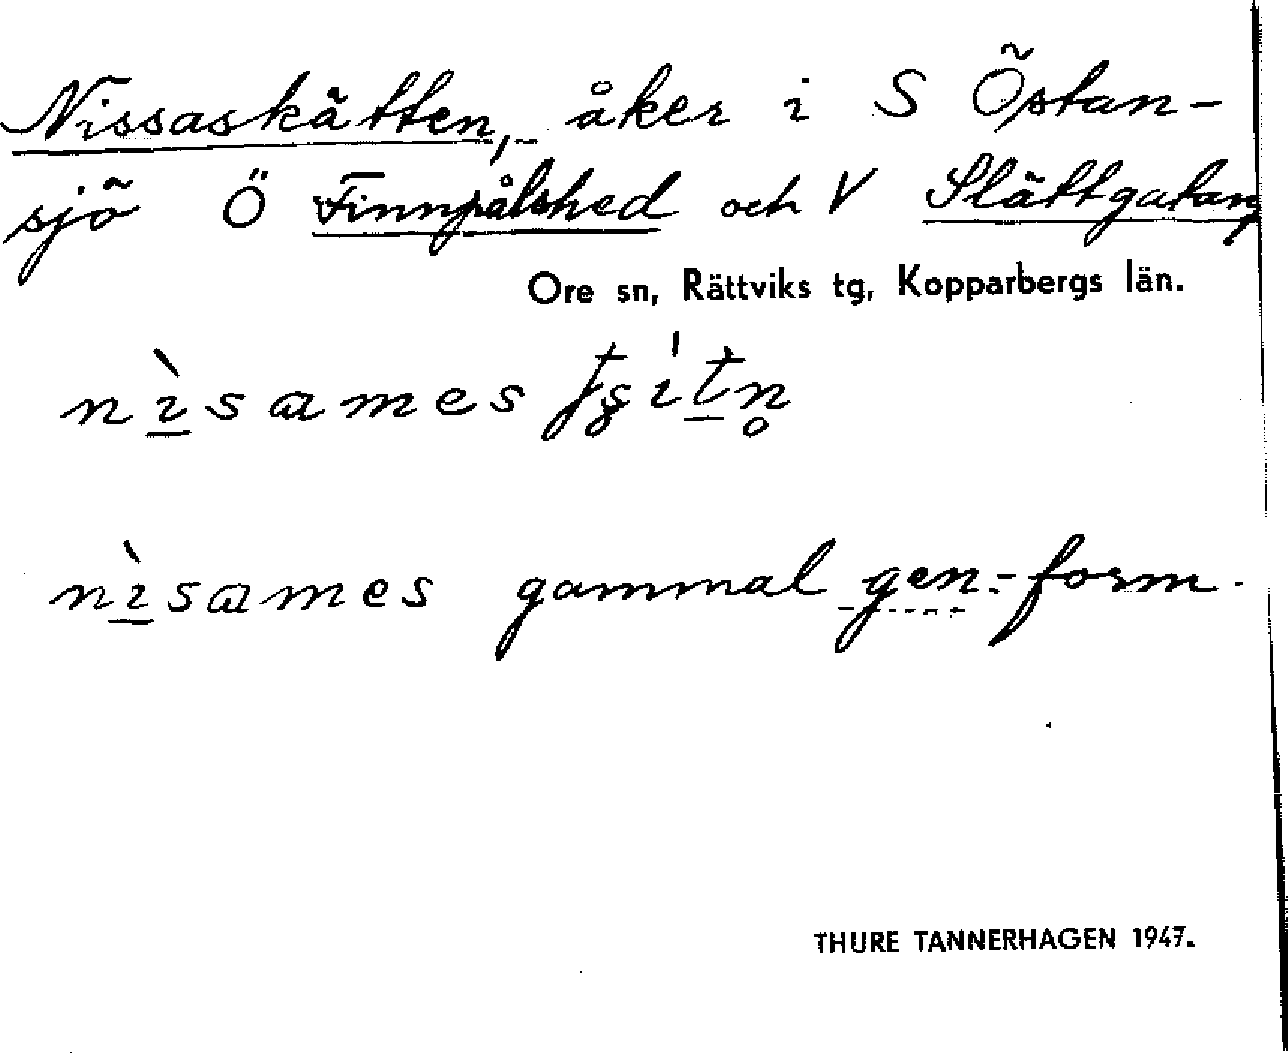 Nissaskätten, åker i S Östan-
sjö Ö Finnpålshed och V Slättgatan,
Ore sn, Rättviks tg, Kopparbergs län.
nìsames
nìsames gammal gen.-form.
THURE TANNERHAGEN 1947.